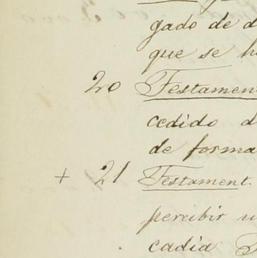 gado de d
que se h
20 Testamen
cedido d
de forma
+ 21 Testament.
percibir u
cadia